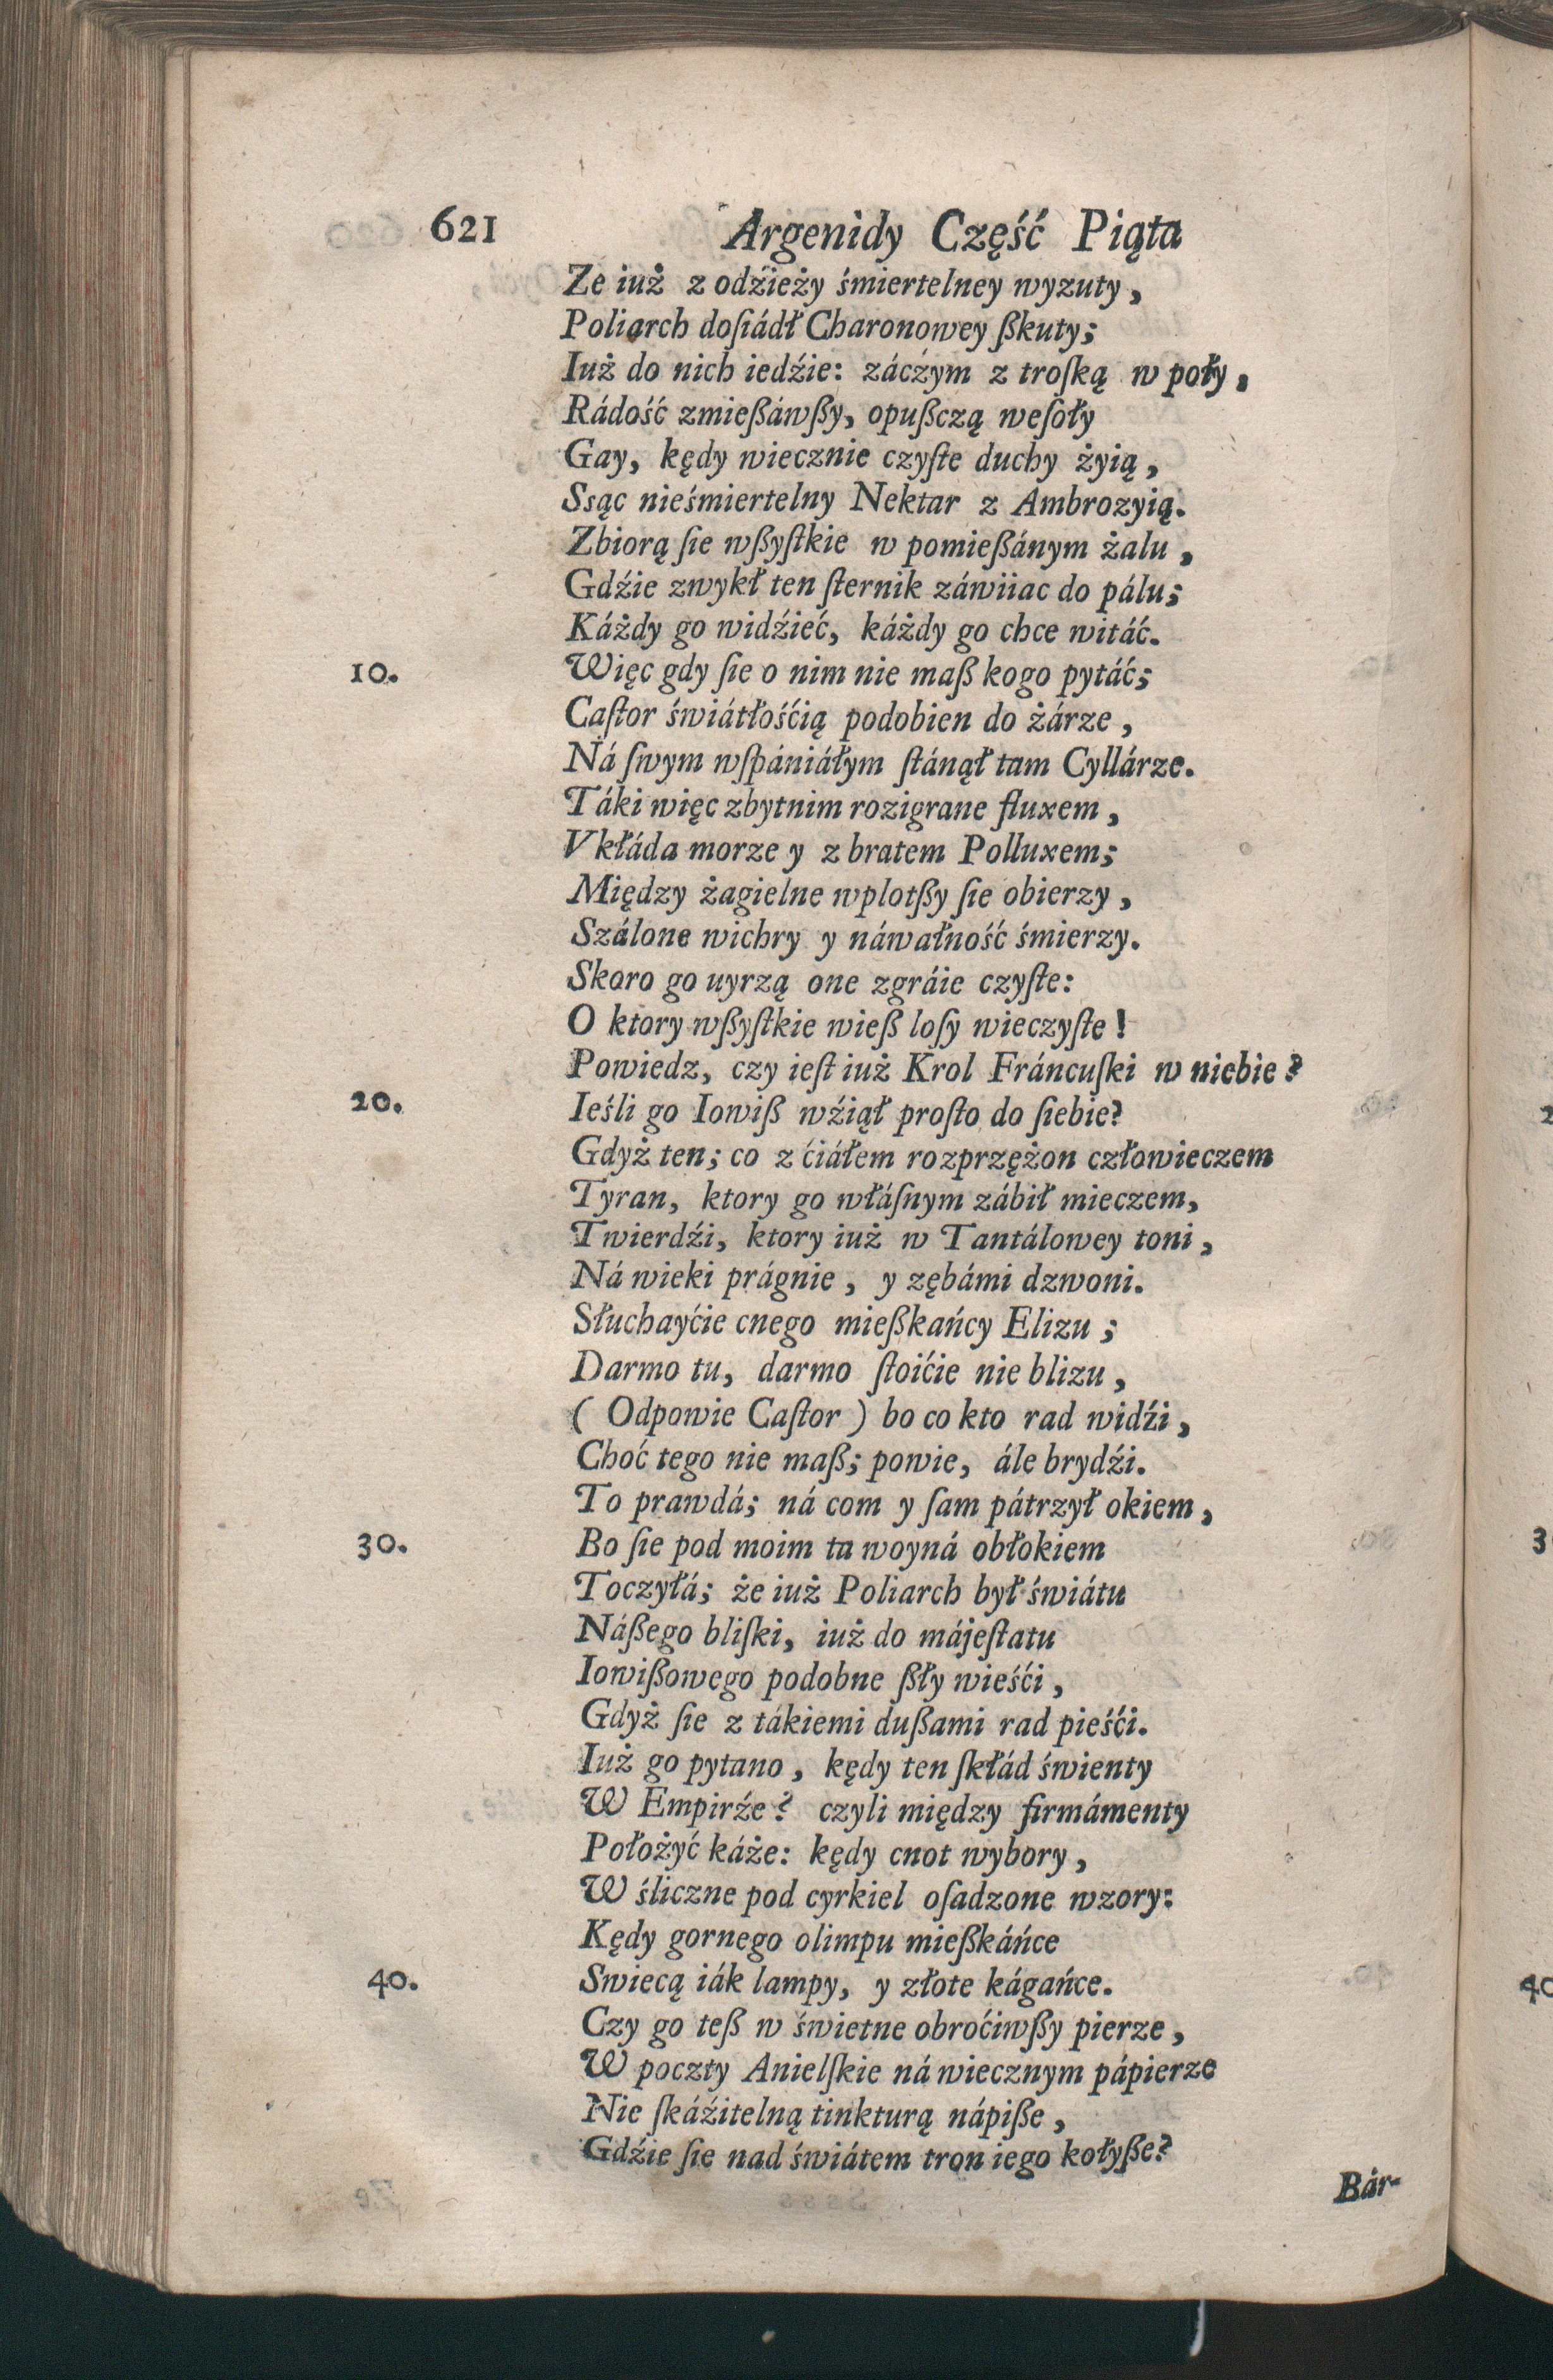 621 Argenidy Część Piąta
Ze iuż z odźieży śmiertelney wyzuty,
Poliarch doſiádł Charonowey ßkuty;
Iuż do nich iedźie: záczym z troſką w poły,
Rádość zmießáwßy, opußczą weſoły
Gay, kędy wiecznie czyſte duchy żyią,
Ssąc nieśmiertelny Nektar z Ambrozyią.
Zbiorą ſie wßyſtkie w pomießánym żalu,
Gdźie zwykł ten ſternik záwiiac do pálu;
Káżdy go widźieć, káżdy go chce witáć.
10. Więc gdy ſie o nim nie maß kogo pytáć;
Caſtor świátłośćią podobien do żárze,
Ná ſwym wſpániáłym ſtánął tam Cyllárze.
Táki więc zbytnim rozigrane fluxem,
Vkłáda morze y z bratem Polluxem;
Między żagielne wplotßy ſie obierzy,
Szálone wichry y náwałność śmierzy.
Skoro go uyrzą one zgráie czyſte:
O ktory wßyſtkie wieß loſy wieczyſte!
Powiedz, czy ieſt iuż Krol Fráncuſki w niebie?
20. Ieśli go Iowiß wźiął proſto do ſiebie?
Gdyż ten; co z ćiáłem rozprzężon człowieczem
Tyran, ktory go włáſnym zábił mieczem,
Twierdźi, ktory iuż w Tantálowey toni,
Ná wieki prágnie, y zębámi dzwoni.
Słuchayćie cnego mießkańcy Elizu;
Darmo tu, darmo ſtoićie nie blizu,
( Odpowie Caſtor ) bo co kto rad widźi,
Choć tego nie maß; powie, ále brydźi.
To prawdá; ná com y ſam pátrzył okiem,
30. Bo ſie pod moim ta woyná obłokiem
Toczyłá; że iuż Poliarch był świátu
Náßego bliſki, iuż do májeſtatu
Iowißowego podobne ßły wieśći,
Gdyż ſie z tákiemi dußami rad pieśći.
Iuż go pytano, kędy ten ſkłád świenty
W Empirźe? czyli między firmámenty
Położyć káże: kędy cnot wybory,
W śliczne pod cyrkiel oſadzone wzory:
Kędy gornego olimpu mießkáńce
40. Swiecą iák lampy, y złote kágańce.
Czy go teß w świetne obroćiwßy pierze,
W poczty Anielſkie ná wiecznym pápierze
Nie ſkáźitelną tinkturą nápiße,
Gdźie ſie nad świátem tron iego kołyße?
Bár-